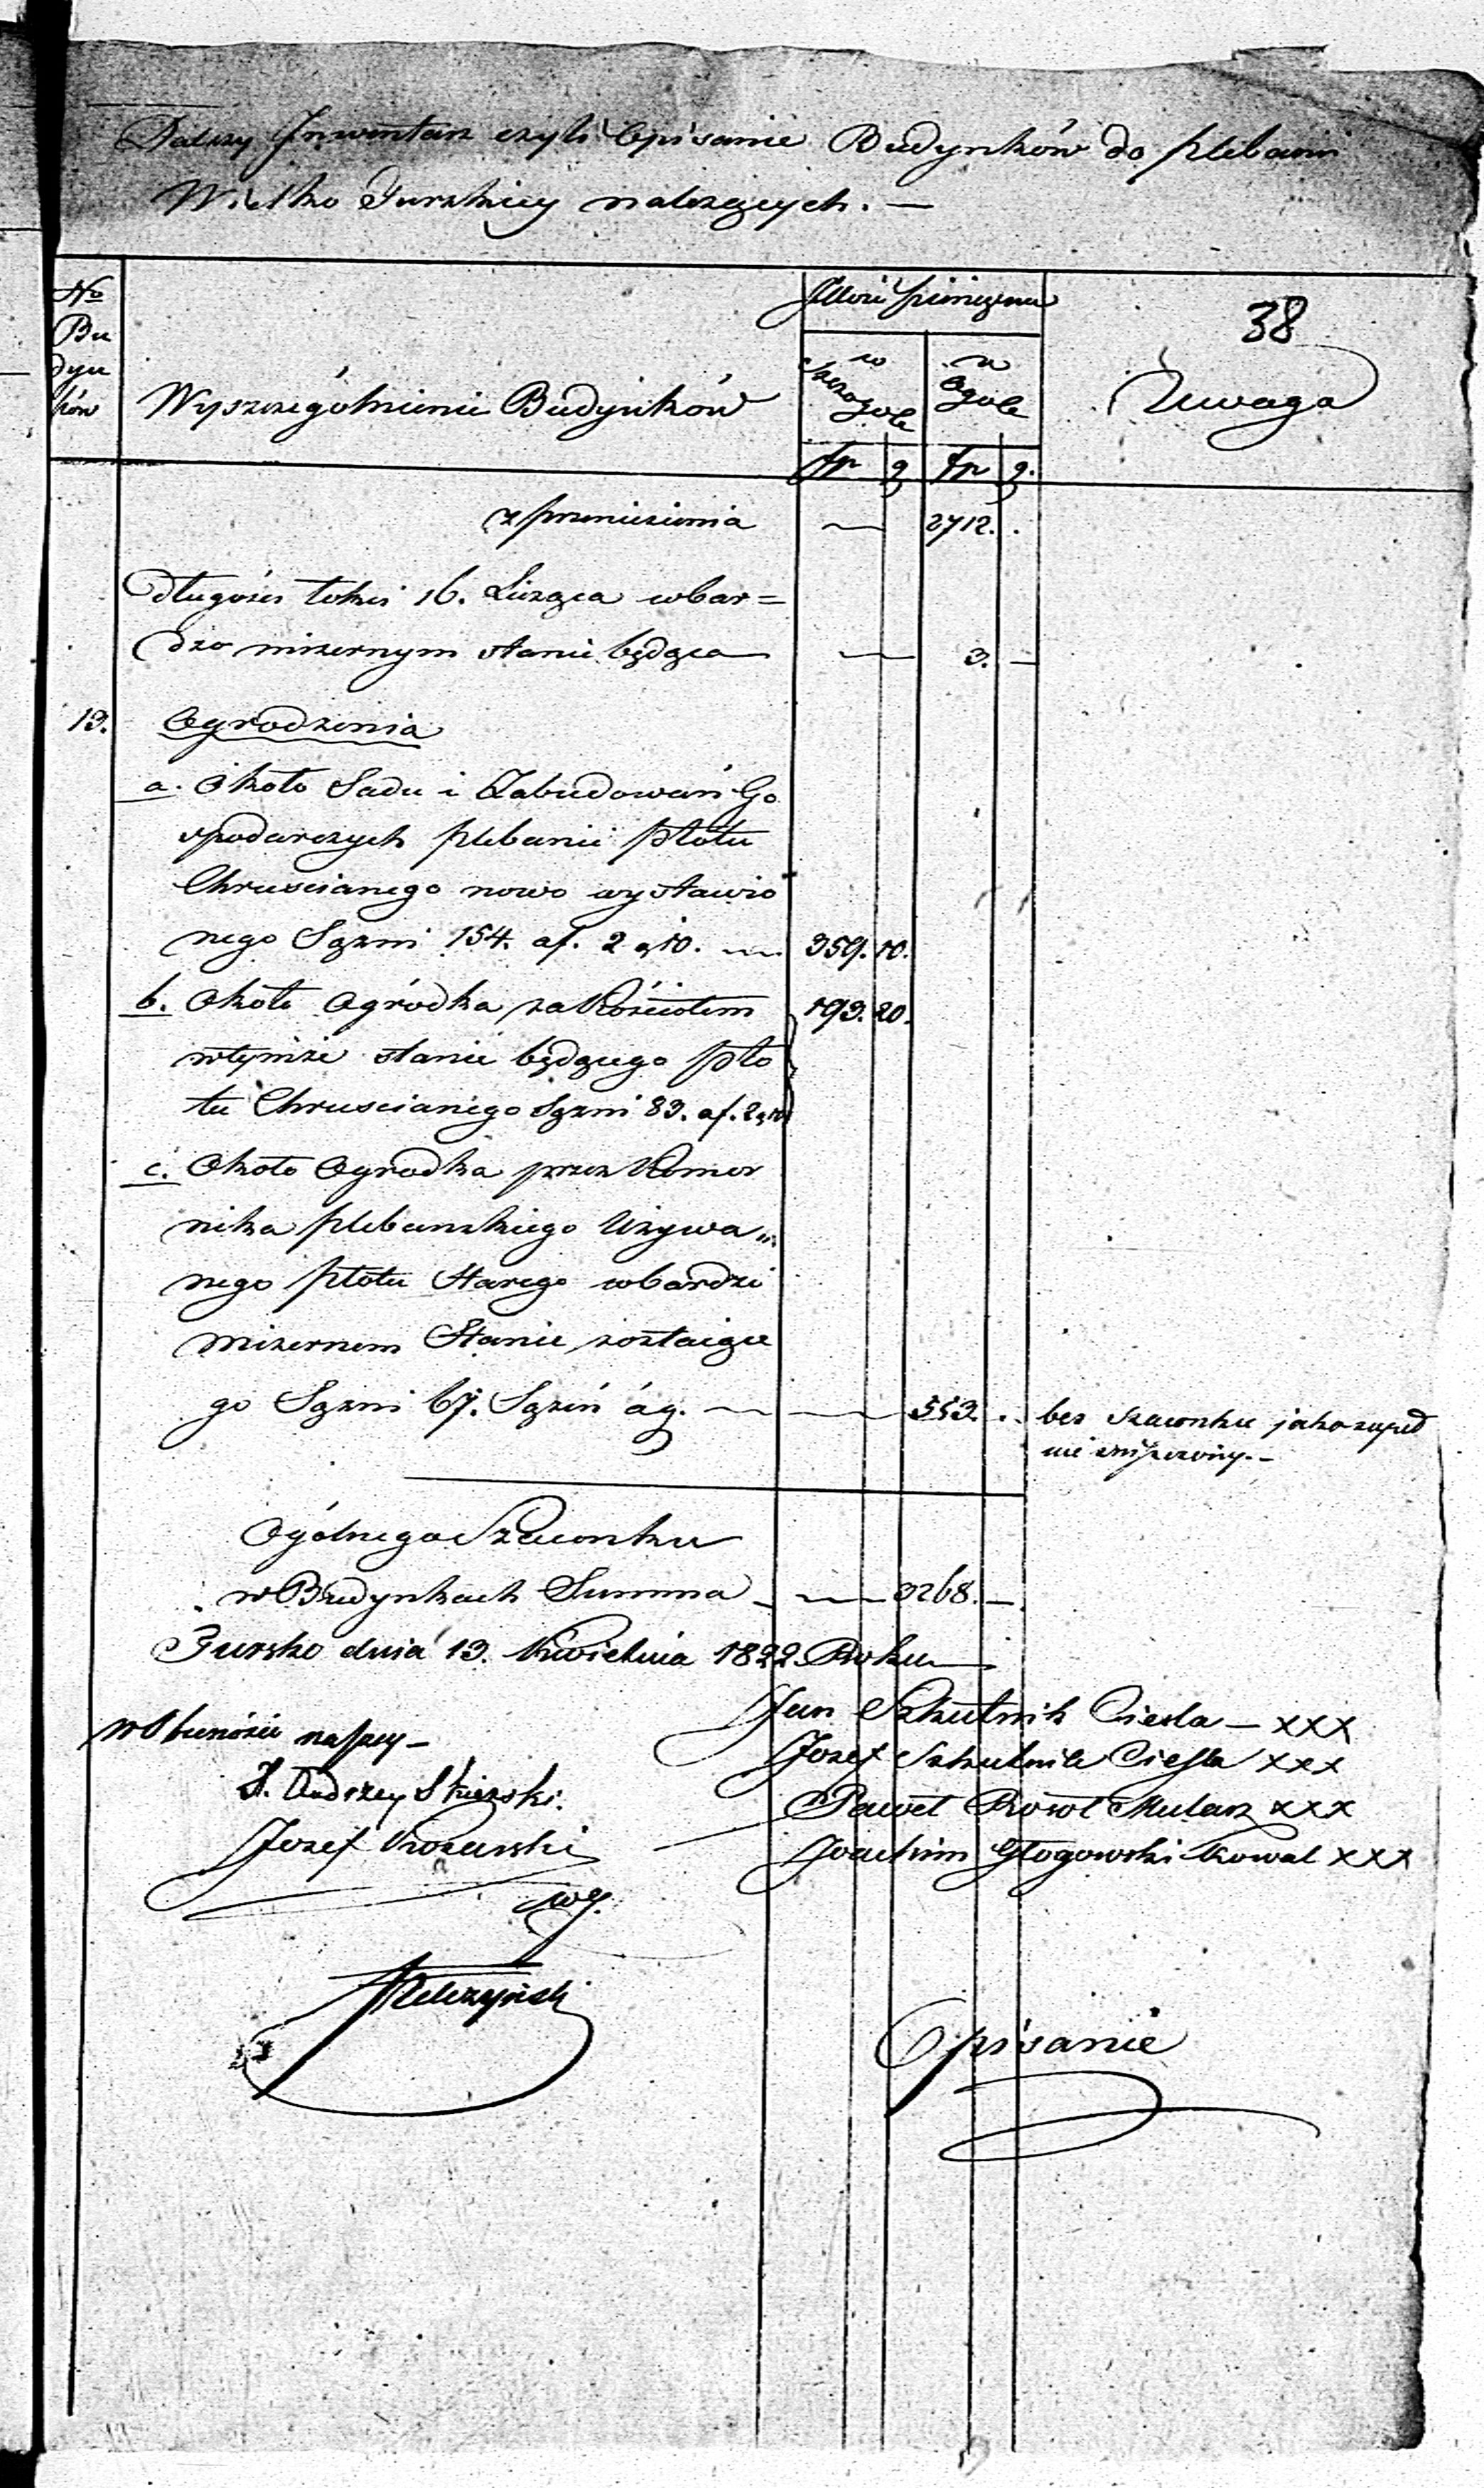 Dalszy Inwentarz czyli Opisanie Budynków do plebanii
Wielko Turskiey należących. —
38
No
Bu
dyn
ków
Wyszczegolnienie Budynków
Illość pieniężna
w
szczegole
w
ogole
Uwaga
fp g fp g.
z przeniesienia — 2712. .
Długości łokci 16. Licząca wbar=
dzo mizernym stanie będąca — 3. —
13. Ogrodzenia
a. Około Sadu i Zabudowań Go
spodarczych plebanii płotu
Chruscianego nowo wystawio
nego Sążni 154. af. 2 g 10. — 359. 10.
b. Około Ogródka za Kościołem 193. 20.
wtymże stanie będącego pło
tu Chruscianego Sążni 83. af. 2 g 10
c. Około Ogrodka przez Komor
nika plebanskiego Używa„
nego płotu Starego wbardzo
mizernem Stanie zostaiące
go Sążni 67. Sążń á g. — — 553. . bez szacunku jako zupeł
nie zniszczony. —
Ogólnego Szacunku
w Budynkach Summa — — 3268. —
Tursko dnia 13. Kwietnia 1822 Roku
w Obecności naszey —
Jan Szkutnik Ciesla — xxx
Jozef Szkutnik Ciesla xxx
X. Andrzey Skierski.
Paweł Mularz xxx
Jozef Kozarski
Joachim Głogowski Kowal xxx
wg.
Opisanie